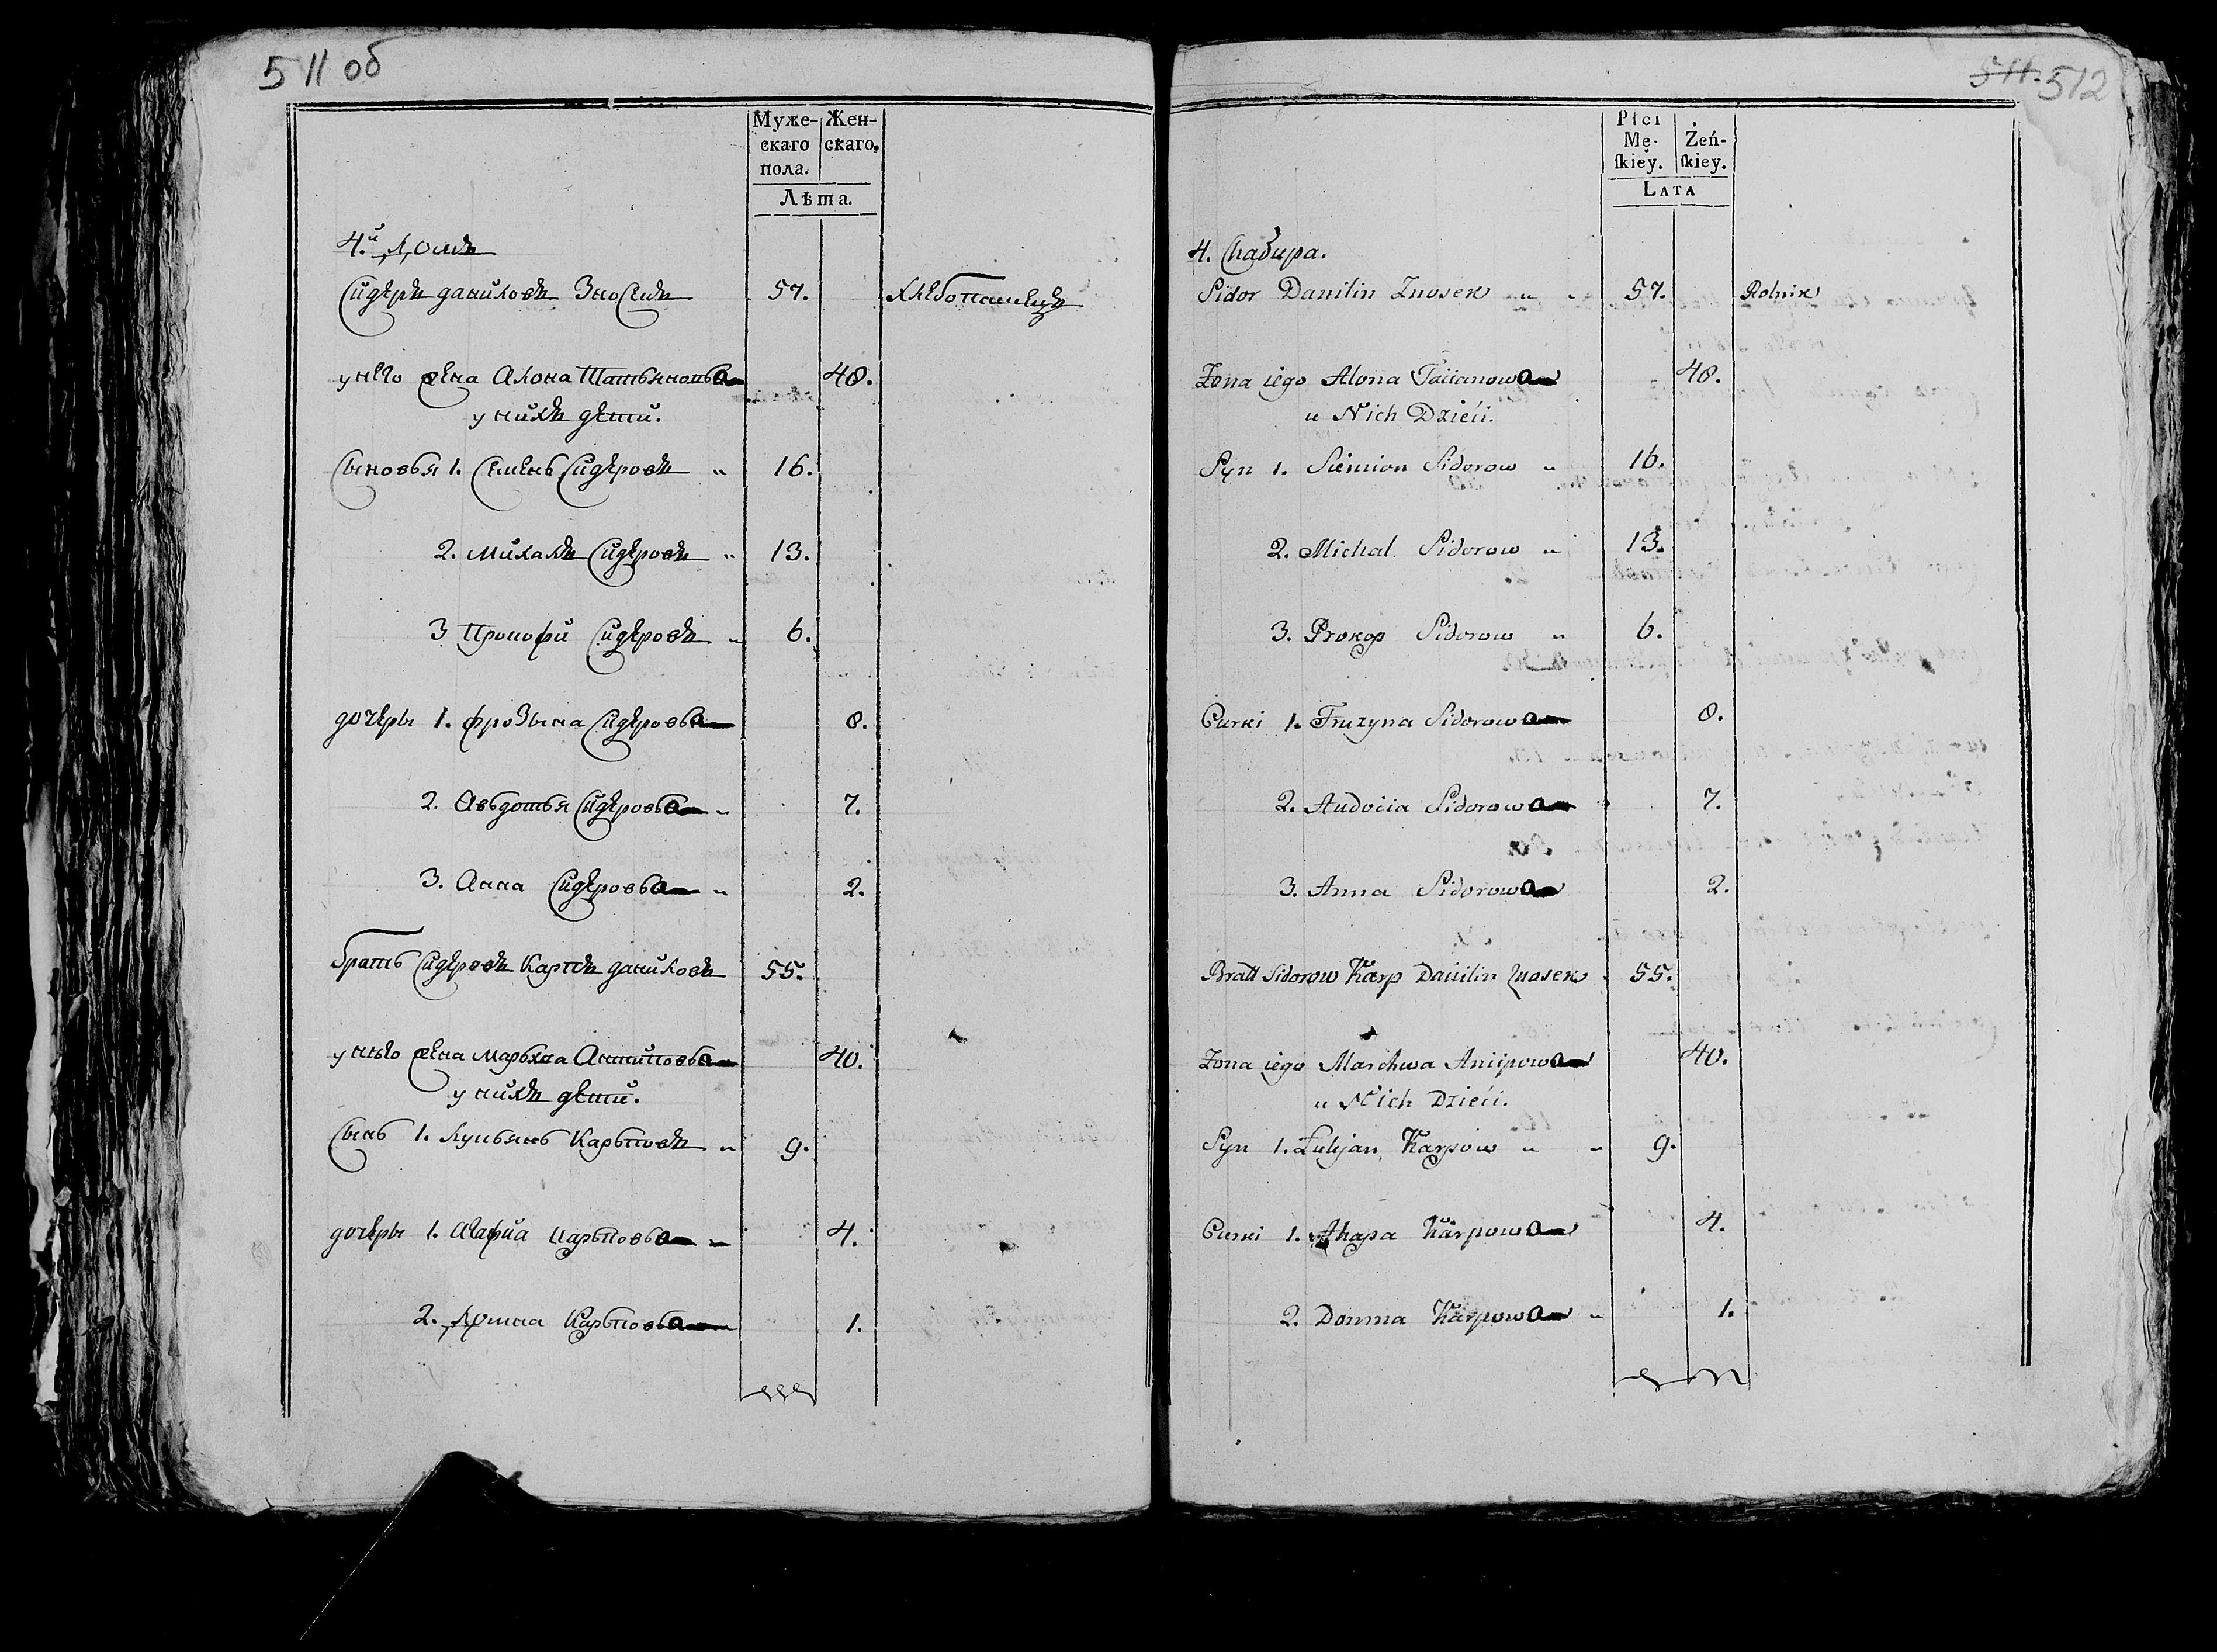 511 об
Муже-
скаго
пола.
Жен-
скаго.
Лѣта.
4.й Домъ
Сидеръ даниловъ Зносекъ 57. хлебопашецъ
у него жена Алона Татьяновва 48.
у нихъ дети.
Сыновья 1. Семенъ Сидеровъ „ 16.
2. Михалъ Сидеровъ „ 13.
3 Прокофи Сидеровъ „ 6.
дочеры 1. фрозына Сидеровва 8.
2. Авьдотья Сидеровва „ 7.
3. Анна Сидеровва „ 2.
братъ Сидеровъ Карпъ даниловъ 55.
у него жена Марьхва Антиповва 40.
у нихъ дети.
Сынъ 1. Лукьянъ Карьповъ „ 9.
дочеры 1. Агафиа Карьповва „ 4.
2. Домна Карьповва 1.
511. 512
Płci
Mę-
ſkiey.
Żeń-
ſkiey.
LATA
4.
Sidor Danilin Znosek „ „ 57. Rolnik
Zona iego Alona Tacianowa 48.
u Nich Dzieći.
Syn 1. Siemion Sidorow „ 16.
2. Michal Sidorow „ 13.
3. Prokop Sidorow „ 6.
Curki 1. Fruzyna Sidorowa 8.
2. Audocia Sidorowa 7.
3. Anna Sidorowa 2.
Bratt Sidorow Karp Danilin Znosek 55.
Zona iego Marchwa Ancipowa 40.
u Nich Dzieći.
Syn 1. Łukjan Karpow „ „ 9.
Curki 1. Ahapa Karpowa 4.
2. Domna Karpowa „ 1.